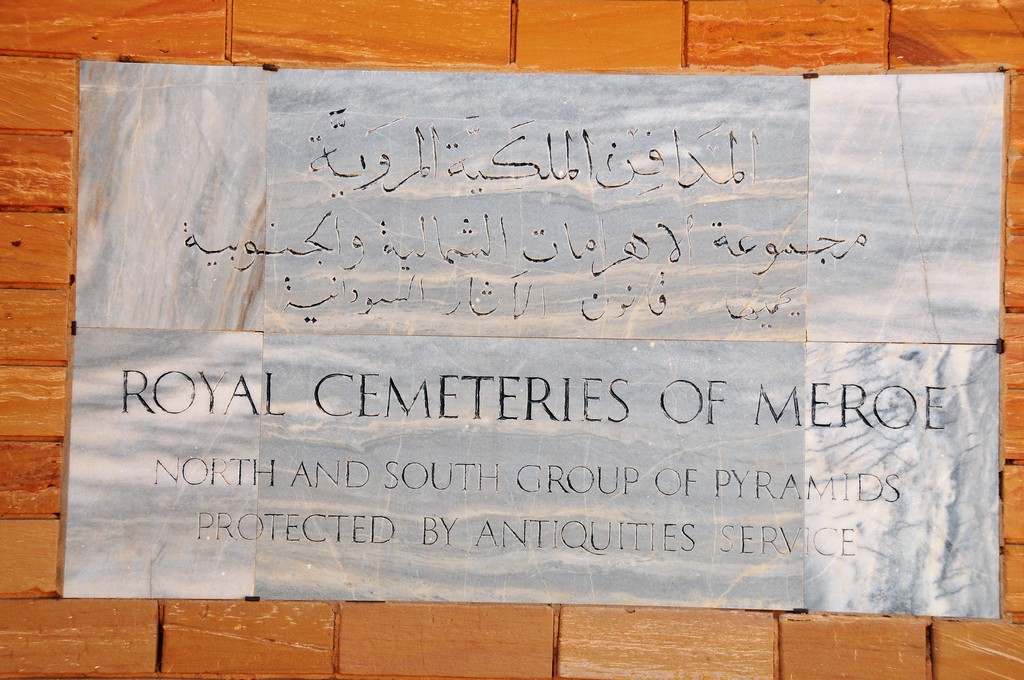 المَدَافِن المَلكيَّة المَرَويَّة
مجموعة ألاهرامات الشمالية والجنوبية
يحميها قانون الآثار السودانية
ROYAL CEMETERIES OF MEROE
NORTH AND SOUTH GROUP OF PYRAMIDS
PROTECTED BY ANTIQUITIES SERVICE